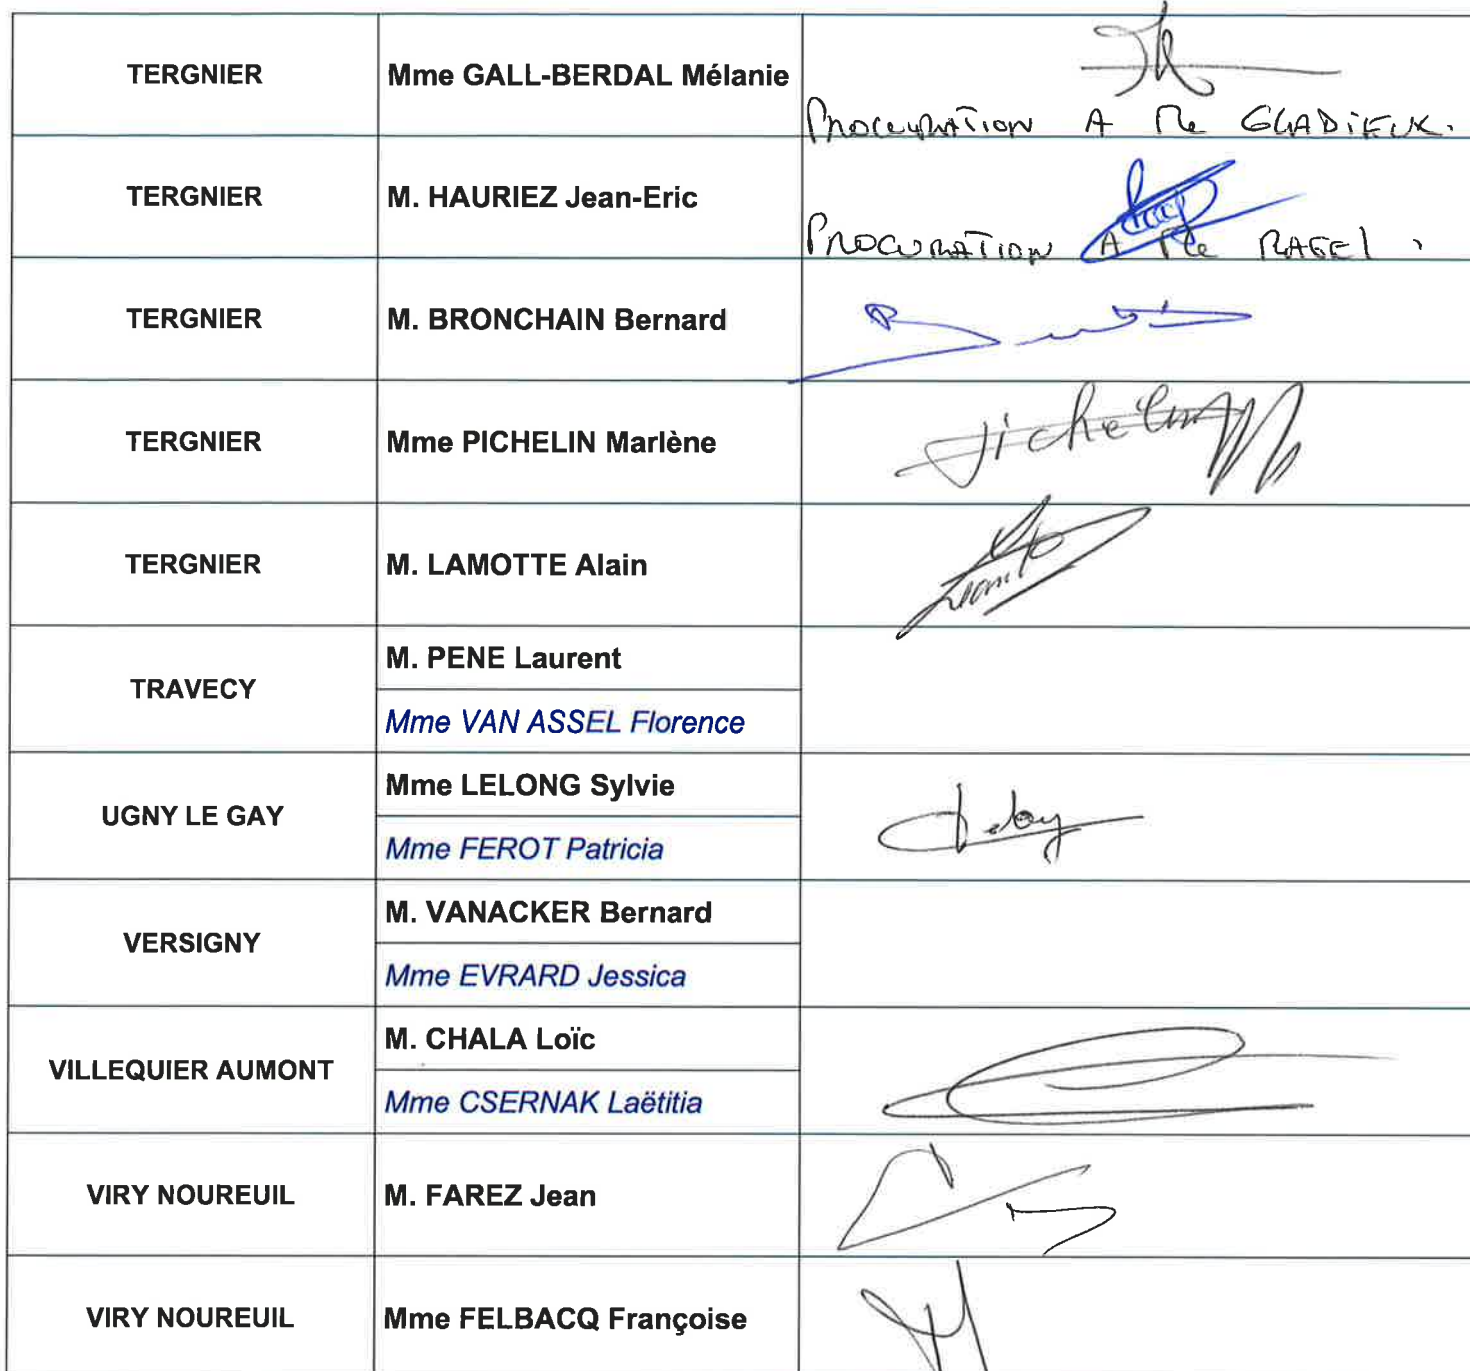 TERGNIER
Mme GALL-BERDAL Mélanie
PROCURATION A Me GLADIEUX.
TERGNIER
M. HAURIEZ Jean-Eric
PROCURATION A Me RAGEL.
TERGNIER
M. BRONCHAIN Bernard
TERGNIER
Mme PICHELIN Marlène
TERGNIER
M. LAMOTTE Alain
TRAVECY
M. PENE Laurent
Mme VAN ASSEL Florence
UGNY LE GAY
Mme LELONG Sylvie
Mme FEROT Patricia
VERSIGNY
M. VANACKER Bernard
Mme EVRARD Jessica
VILLEQUIER AUMONT
M. CHALA Loïc
Mme CSERNAK Laëtitia
VIRY NOUREUIL
M. FAREZ Jean
VIRY NOUREUIL
Mme FELBACQ Françoise